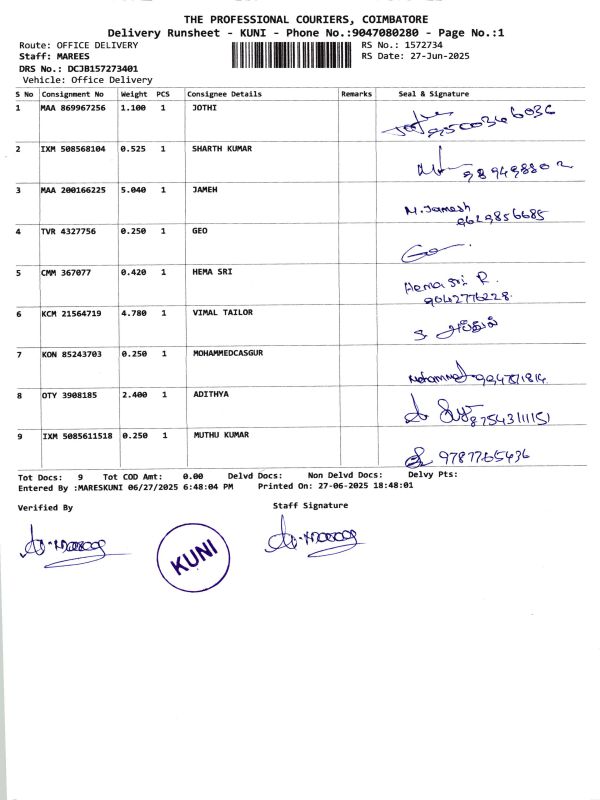 THE PROFESSIONAL COURIERS, COIMBATORE
Delivery Runsheet - KUNI - Phone No.:9047080280 - Page No.:1
Route: OFFICE DELIVERY RS No.: 1572734
Staff: MAREES RS Date: 27-Jun-2025
DRS No.: DCJB157273401
Vehicle: Office Delivery
S No Consignment No Weight PCS Consignee Details Remarks Seal & Signature
1 MAA 869967256 1.100 1 JOTHI
2 IXM 508568104 0.525 1 SHARTH KUMAR
3 MAA 200166225 5.040 1 JAMEH M. Jamesh
9629856685
4 TVR 4327756 0.250 1 GEO Geo
5 CMM 367077 0.420 1 HEMA SRI Hema sri R.
9042776228
6 KCM 21564719 4.780 1 VIMAL TAILOR
7 KON 85243703 0.250 1 MOHAMMEDCASGUR Mohammed
8 OTY 3908185 2.400 1 ADITHYA
9 IXM 5085611518 0.250 1 MUTHU KUMAR 9787765436
Tot Docs: 9 Tot COD Amt: 0.00 Delvd Docs: Non Delvd Docs: Delvy Pts:
Entered By :MARESKUNI 06/27/2025 6:48:04 PM Printed On: 27-06-2025 18:48:01
Verified By Staff Signature
KUNI